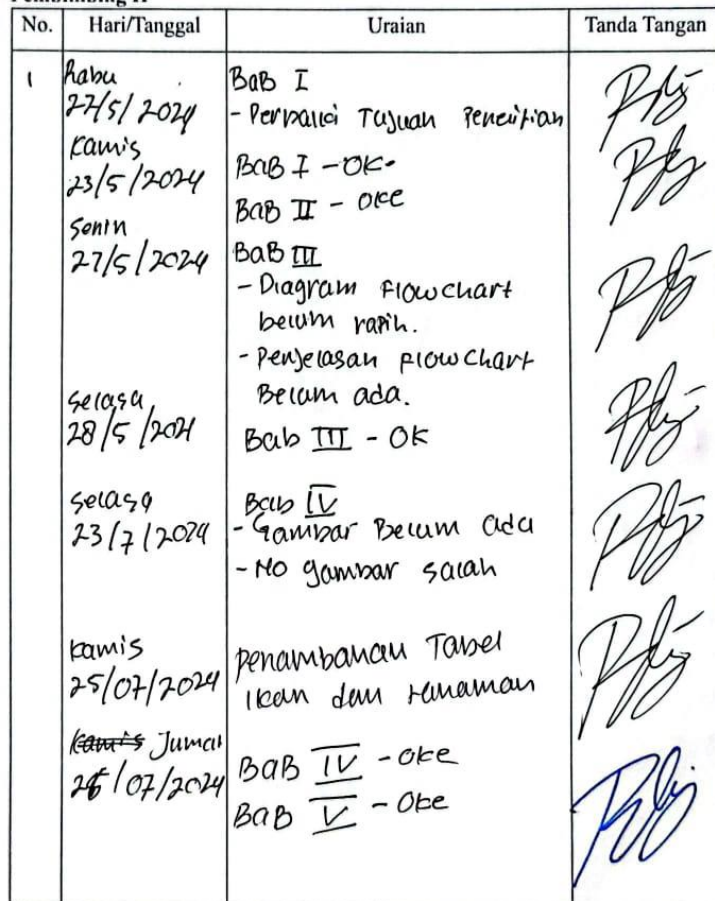 Pembimbing II
No. Hari/Tanggal Uraian Tanda Tangan
1 Rabu BaB I
22/5/2024 - Perbaiki Tujuan Penelitian
Kamis
23/5/2024 BaB I - OK
BaB II - oke
Senin
27/5/2024 BaB III
- Diagram Flowchart
belum rapih.
- Penjelasan flowchart
Belum ada.
Selasa
28/5/2024 Bab III - OK
Selasa Bab IV
23/7/2024 - Gambar Belum ada
- No gambar salah
Kamis penambahan Tabel
25/07/2024 ikan dan tanaman
Kamis Jumat
26/07/2024 BaB IV - oke
BaB V - oke